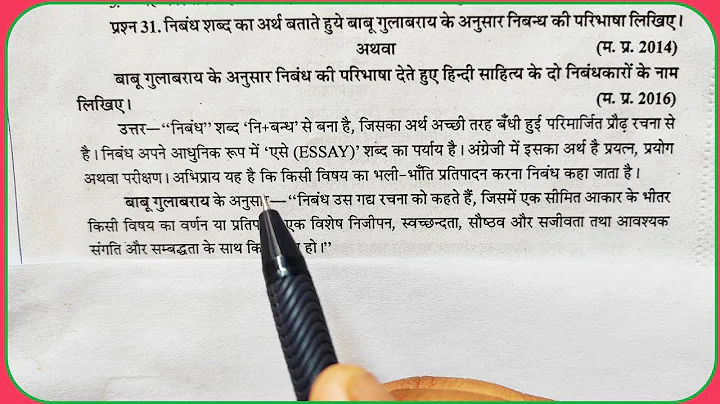 प्रश्न 31. निबंध शब्द का अर्थ बताते हुये बाबू गुलाबराय के अनुसार निबन्ध की परिभाषा लिखिए।
अथवा (म. प्र. 2014)
बाबू गुलाबराय के अनुसार निबंध की परिभाषा देते हुए हिन्दी साहित्य के दो निबंधकारों के नाम
लिखिए। (म. प्र. 2016)
उत्तर—“निबंध” शब्द ‘नि+बन्ध’ से बना है, जिसका अर्थ अच्छी तरह बँधी हुई परिमार्जित प्रौढ़ रचना से
है। निबंध अपने आधुनिक रूप में ‘एसे (ESSAY)’ शब्द का पर्याय है। अंग्रेजी में इसका अर्थ है प्रयत्न, प्रयोग
अथवा परीक्षण। अभिप्राय यह है कि किसी विषय का भली-भाँति प्रतिपादन करना निबंध कहा जाता है।
बाबू गुलाबराय के अनुसार—“निबंध उस गद्य रचना को कहते हैं, जिसमें एक सीमित आकार के भीतर
किसी विषय का वर्णन या एक विशेष निजीपन, स्वच्छन्दता, सौष्ठव और सजीवता तथा आवश्यक
संगति और सम्बद्धता के साथ हो।”